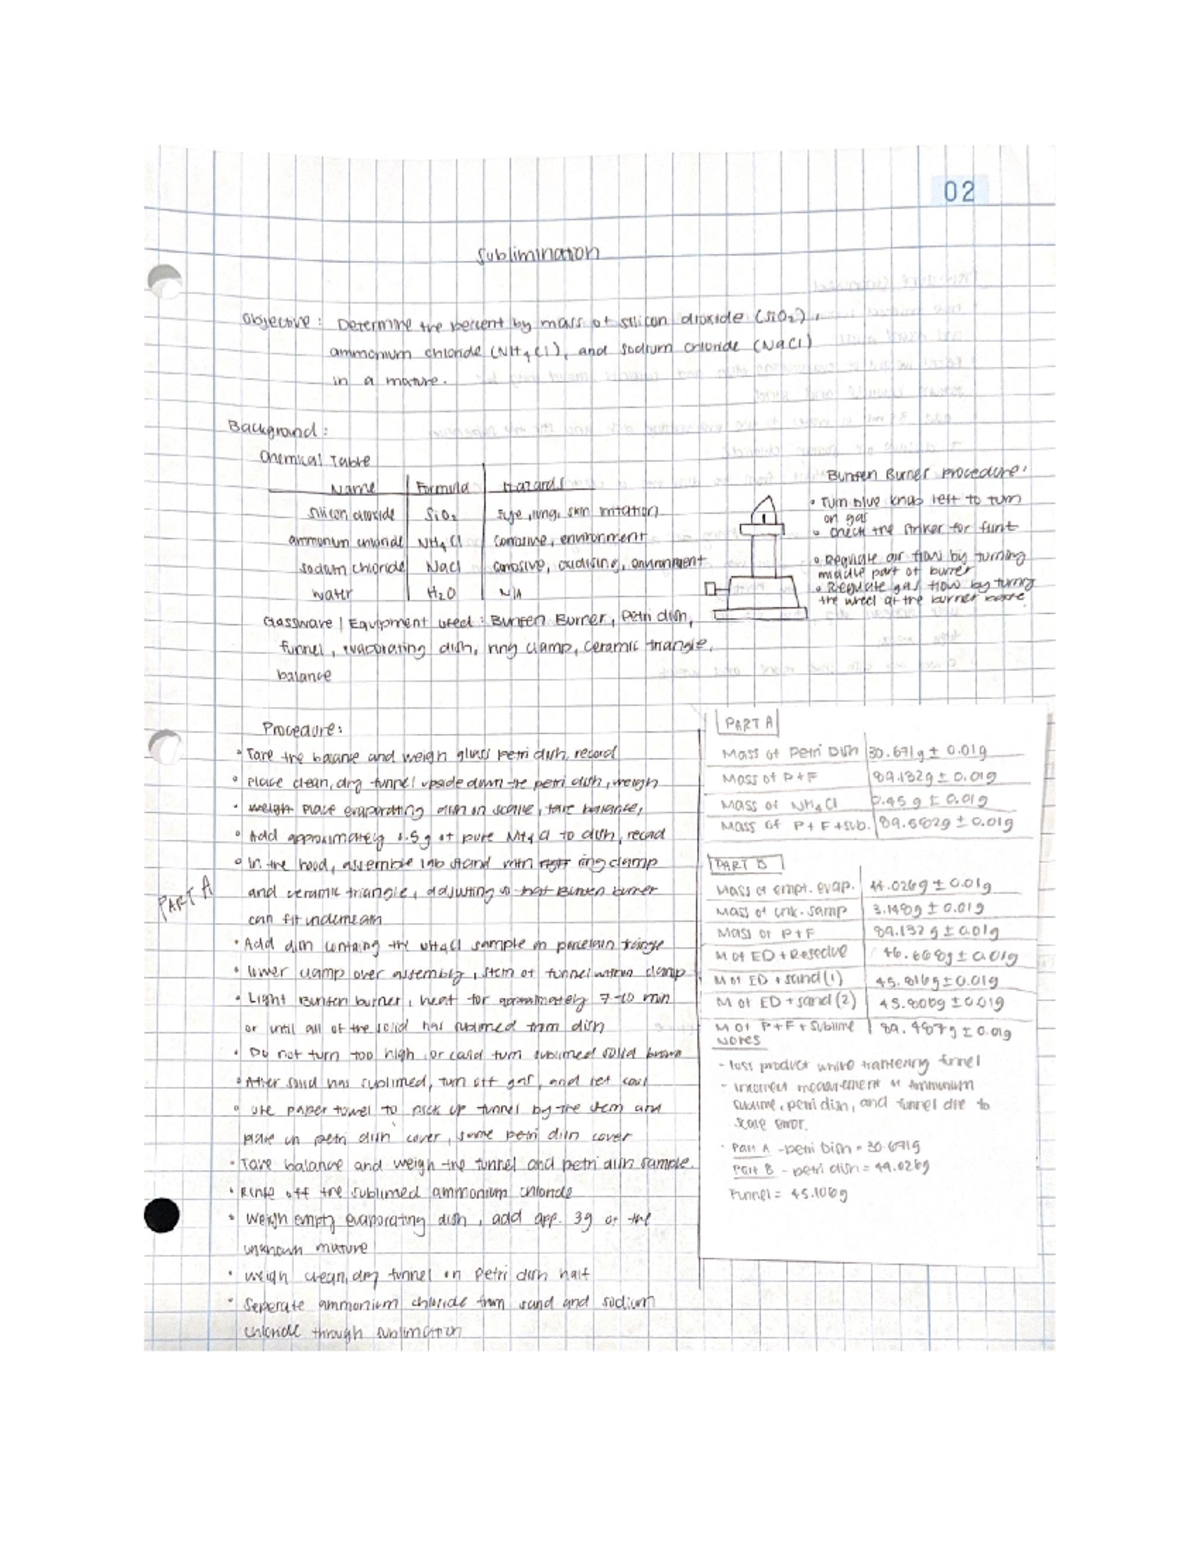 02
Sublimination
Objective: Determine the percent by mass of silicon dioxide (SiO2),
ammonium chloride (NH4Cl), and sodium chloride (NaCl)
in a mixture.
Background:
Chemical Table
Name Formula Hazards
silicon dioxide SiO2 Eye, lung, skin irritation
ammonium chloride NH4Cl corrosive, environment
sodium chloride NaCl corrosive, oxidising, environment
water H2O N/A
Bunsen Burner procedure:
• Turn blue knob left to turn
on gas
• check the striker for flint
• Regulate air flow by turning
middle part of burner
• Regulate gas flow by turning
the wheel at the burner base.
Glassware | Equipment used: Bunsen Burner, Petri dish,
funnel, evaporating dish, ring clamp, ceramic triangle,
balance
Procedure:
PART A
• Tare the balance and weigh glass petri dish, record
• Place clean, dry funnel upside down the petri dish, weigh
• weigh Place evaporating dish on scale, tare balance,
• Add approximately 0.5g of pure NH4Cl to dish, record
• In the hood, assemble lab stand with ring clamp
and ceramic triangle, adjusting so that Bunsen burner
can fit underneath
• Add dish containing the NH4Cl sample on porcelain triangle
• lower clamp over assembly, stem of funnel within clamp
• Light Bunsen burner, heat for approximately 7-10 min
or until all of the solid has sublimed from dish
• Do not turn too high, or could turn sublimed solid brown
• After solid has sublimed, turn off gas, and let cool
• use paper towel to pick up funnel by the stem and
place on petri dish cover, same petri dish cover
• Tare balance and weigh the funnel and petri dish sample.
• Rinse off the sublimed ammonium chloride
• Weigh empty evaporating dish, add app. 3g of the
unknown mixture
• weigh clean, dry funnel on Petri dish half
• Seperate ammonium chloride from sand and sodium
chloride through sublimation
PART A
Mass of Petri Dish 30.671g ± 0.01g
Mass of P+F 89.132g ± 0.01g
Mass of NH4Cl 0.45g ± 0.01g
Mass of P+F+sub. 89.582g ± 0.01g
PART B
Mass of empt. evap. 44.026g ± 0.01g
Mass of unk. samp 3.148g ± 0.01g
Mass of P+F 89.132g ± 0.01g
M of ED + Resolve 46.668g ± 0.01g
M of ED + sand (1) 45.816g ± 0.01g
M of ED + sand (2) 45.806g ± 0.01g
M of P+F+Sublime 89.487g ± 0.01g
NOTES
- loss product while transfering funnel
- incorrect measurement of ammonium
sublime, petri dish, and funnel due to
scale error.
- Part A - petri Dish = 30.671g
Part B - petri dish = 44.026g
Funnel = 45.106g